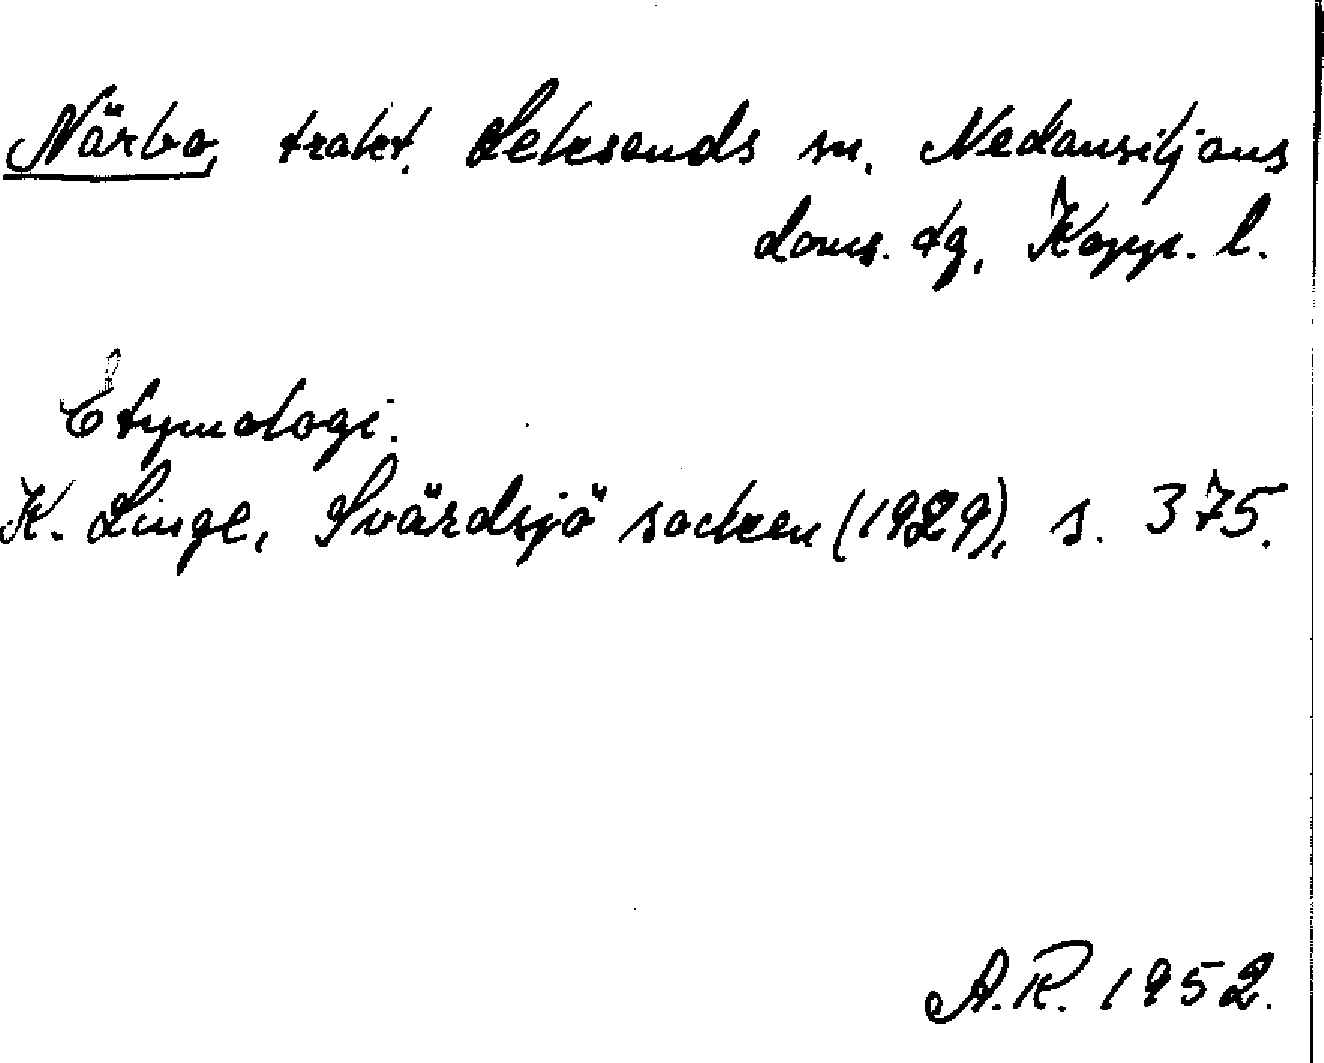 Närbo, trakt. Leksands sn, Nedansiljans
doms. tg, Kopp. l.
Etymologi.
K. Linge, Svärdsjö socken (1929), s. 375.
A.R. 1952.